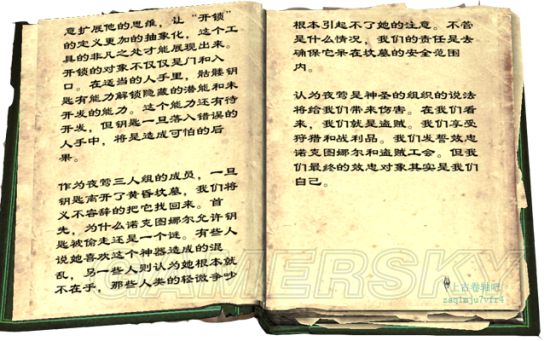 意扩展他的思维，让“开锁”
的定义更加的抽象化，这个工
具的非凡之处才能展现出来。
开锁的对象不仅仅是门和入
口。在适当的人手里，骷髅钥
匙有能力解锁隐藏的潜能和未
开发的能力。这个能力还有待
开发，但钥匙一旦落入错误的
人手中，将是造成可怕的后
果。
作为夜莺三人组的成员，一旦
钥匙离开了黄昏坟墓，我们将
义不容辞的把它找回来。首
先，为什么诺克图娜尔允许钥
匙被偷走还是一个谜。有些人
说她喜欢这个神器造成的混
乱，另一些人则认为她根本就
不在乎，那些人类的轻微争吵
根本引起不了她的注意。不管
是什么情况，我们的责任是去
确保它呆在坟墓的安全范围
内。
认为夜莺是神圣的组织的说法
将给我们带来伤害。在我们看
来，我们就是盗贼。我们享受
狩猎和战利品。我们发誓效忠
诺克图娜尔和盗贼工会。但我
们最终的效忠对象其实是我们
自己。
GAMERSKY
上古卷轴吧
zaq1mju7vfr4